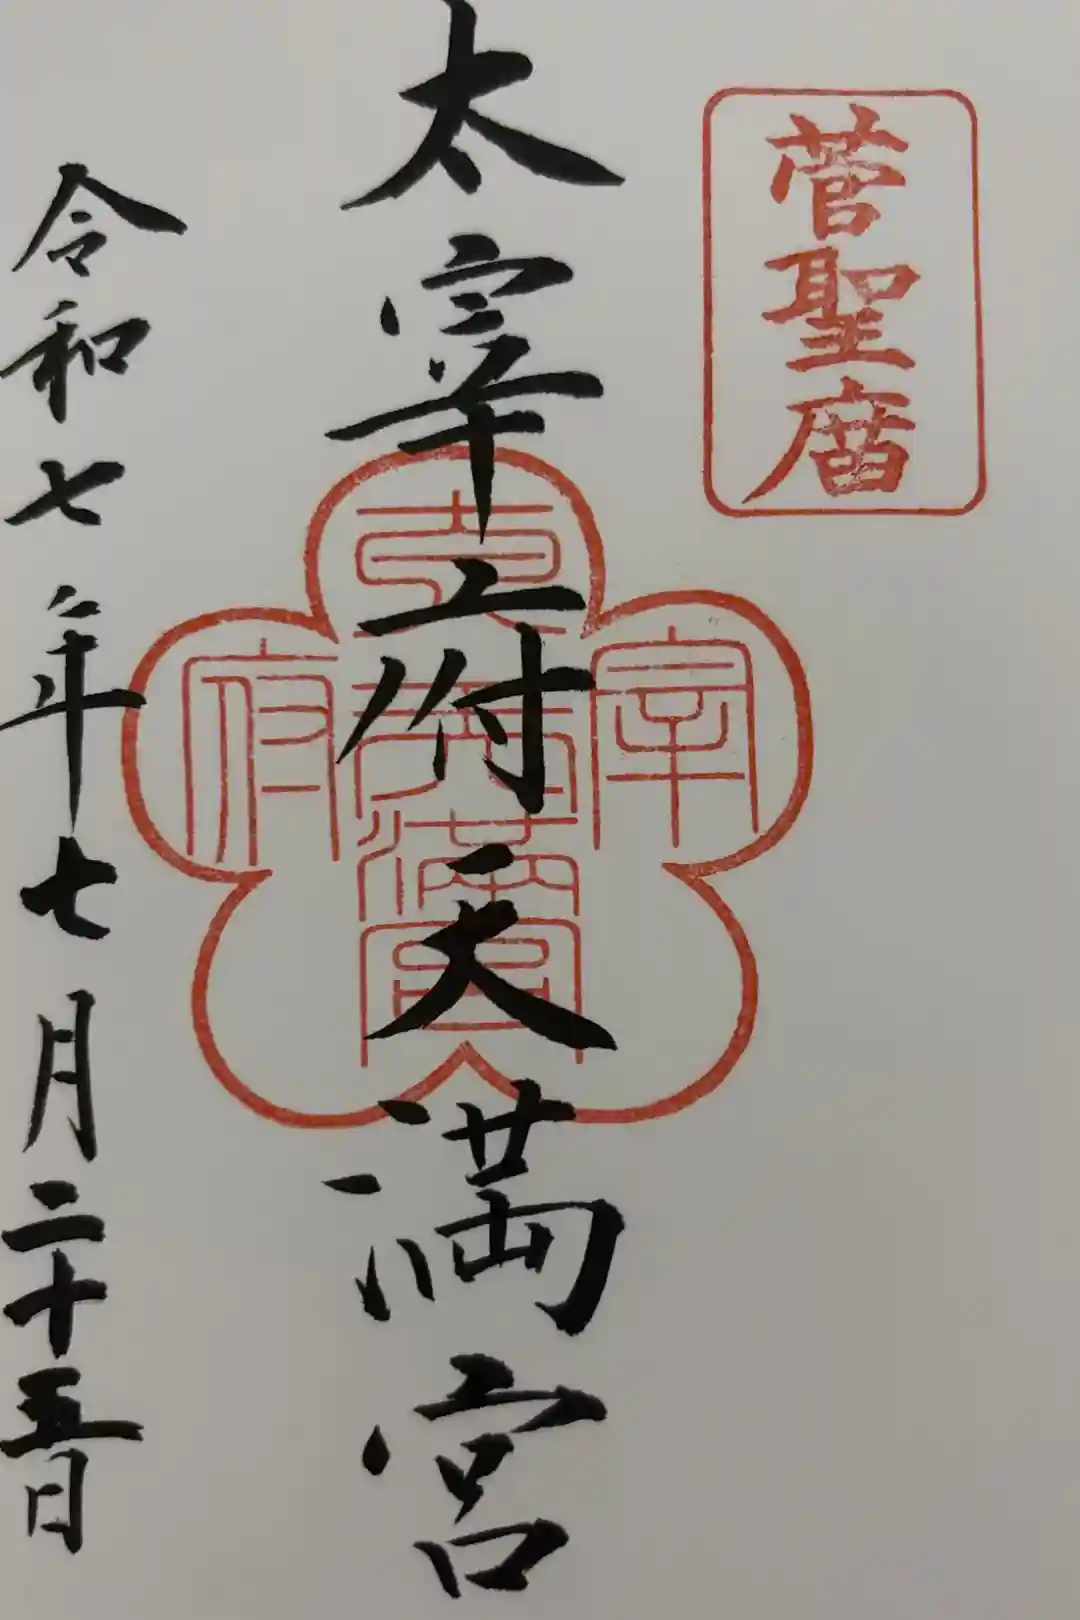 菅聖廟
太宰府天満宮
太宰府天満宮
令和七年七月二十五日